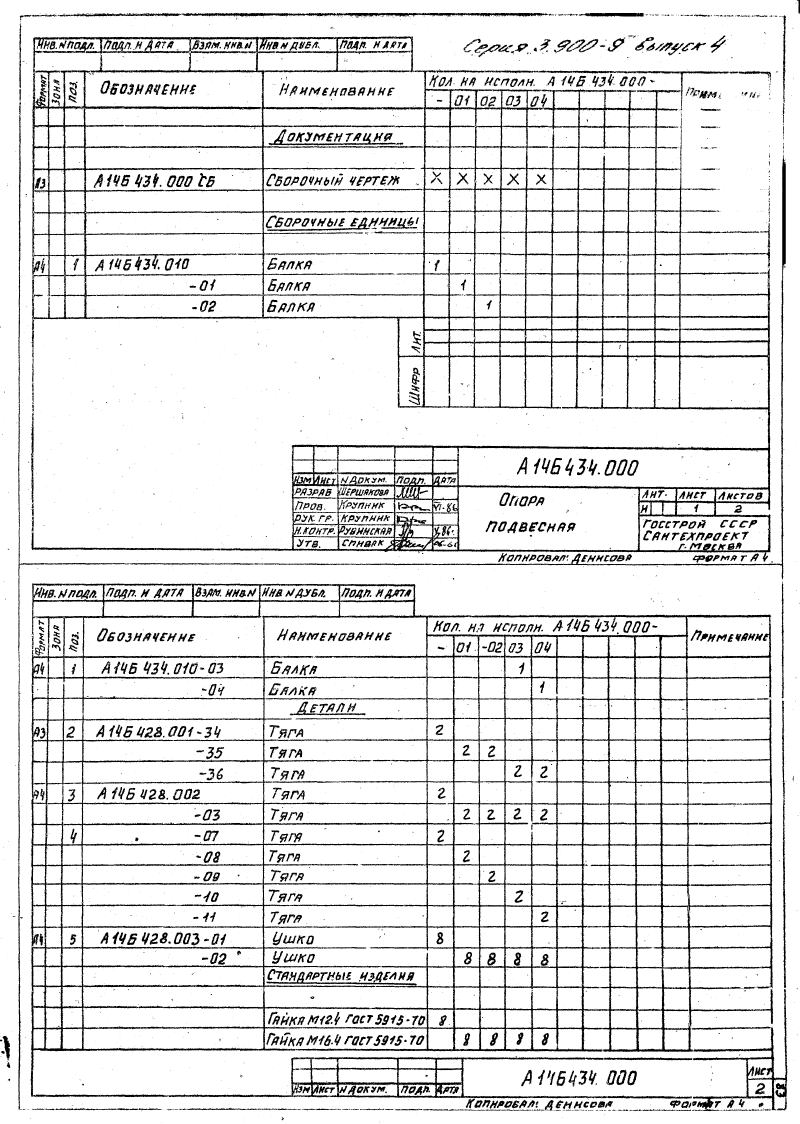 Серия 3.900-9 выпуск 4
Инв.№подл. Подп. и дата Взам. инв.№ Инв№дубл. Подп. и дата
Формат Зона Поз. Обозначение Наименование Кол. на исполн. А14Б434.000-
- 01 02 03 04
Документация
А3 А14Б434.000 СБ Сборочный чертеж X X X X X
Сборочные единицы
А4 1 А14Б434.010 Балка 1
-01 Балка 1
-02 Балка 1
Лит.
Шифр
А14Б434.000
Изм Лист № докум. Подп. Дата
Разраб Шершакова
Пров. Крупник VI-86
Рук. гр. Крупник
Н.контр. Рубинская
Утв. Спивак
Опора
подвесная
Лит. Лист Листов
И 1 2
Госстрой СССР
Сантехпроект
г. Москва
Копировал: Денисова Формат А4
Инв.№подл. Подп. и дата Взам. инв.№ Инв№дубл. Подп. и дата
Формат Зона Поз. Обозначение Наименование Кол. на исполн. А14Б434.000- Примечание
- 01 -02 03 04
А4 1 А14Б434.010-03 Балка 1
-04 Балка 1
Детали
А3 2 А14Б428.001-34 Тяга 2
-35 Тяга 2 2
-36 Тяга 2 2
А4 3 А14Б428.002 Тяга 2
-03 Тяга 2 2 2 2
4 -07 Тяга 2
-08 Тяга 2
-09 Тяга 2
-10 Тяга 2
-11 Тяга 2
А4 5 А14Б428.003-01 Ушко 8
-02 Ушко 8 8 8 8
Стандартные изделия
Гайка М12.4 ГОСТ 5915-70 8
Гайка М16.4 ГОСТ 5915-70 8 8 8 8
А14Б434.000
Лист
2
Изм Лист № докум. Подп. Дата
Копировал: Денисова Формат А4
83